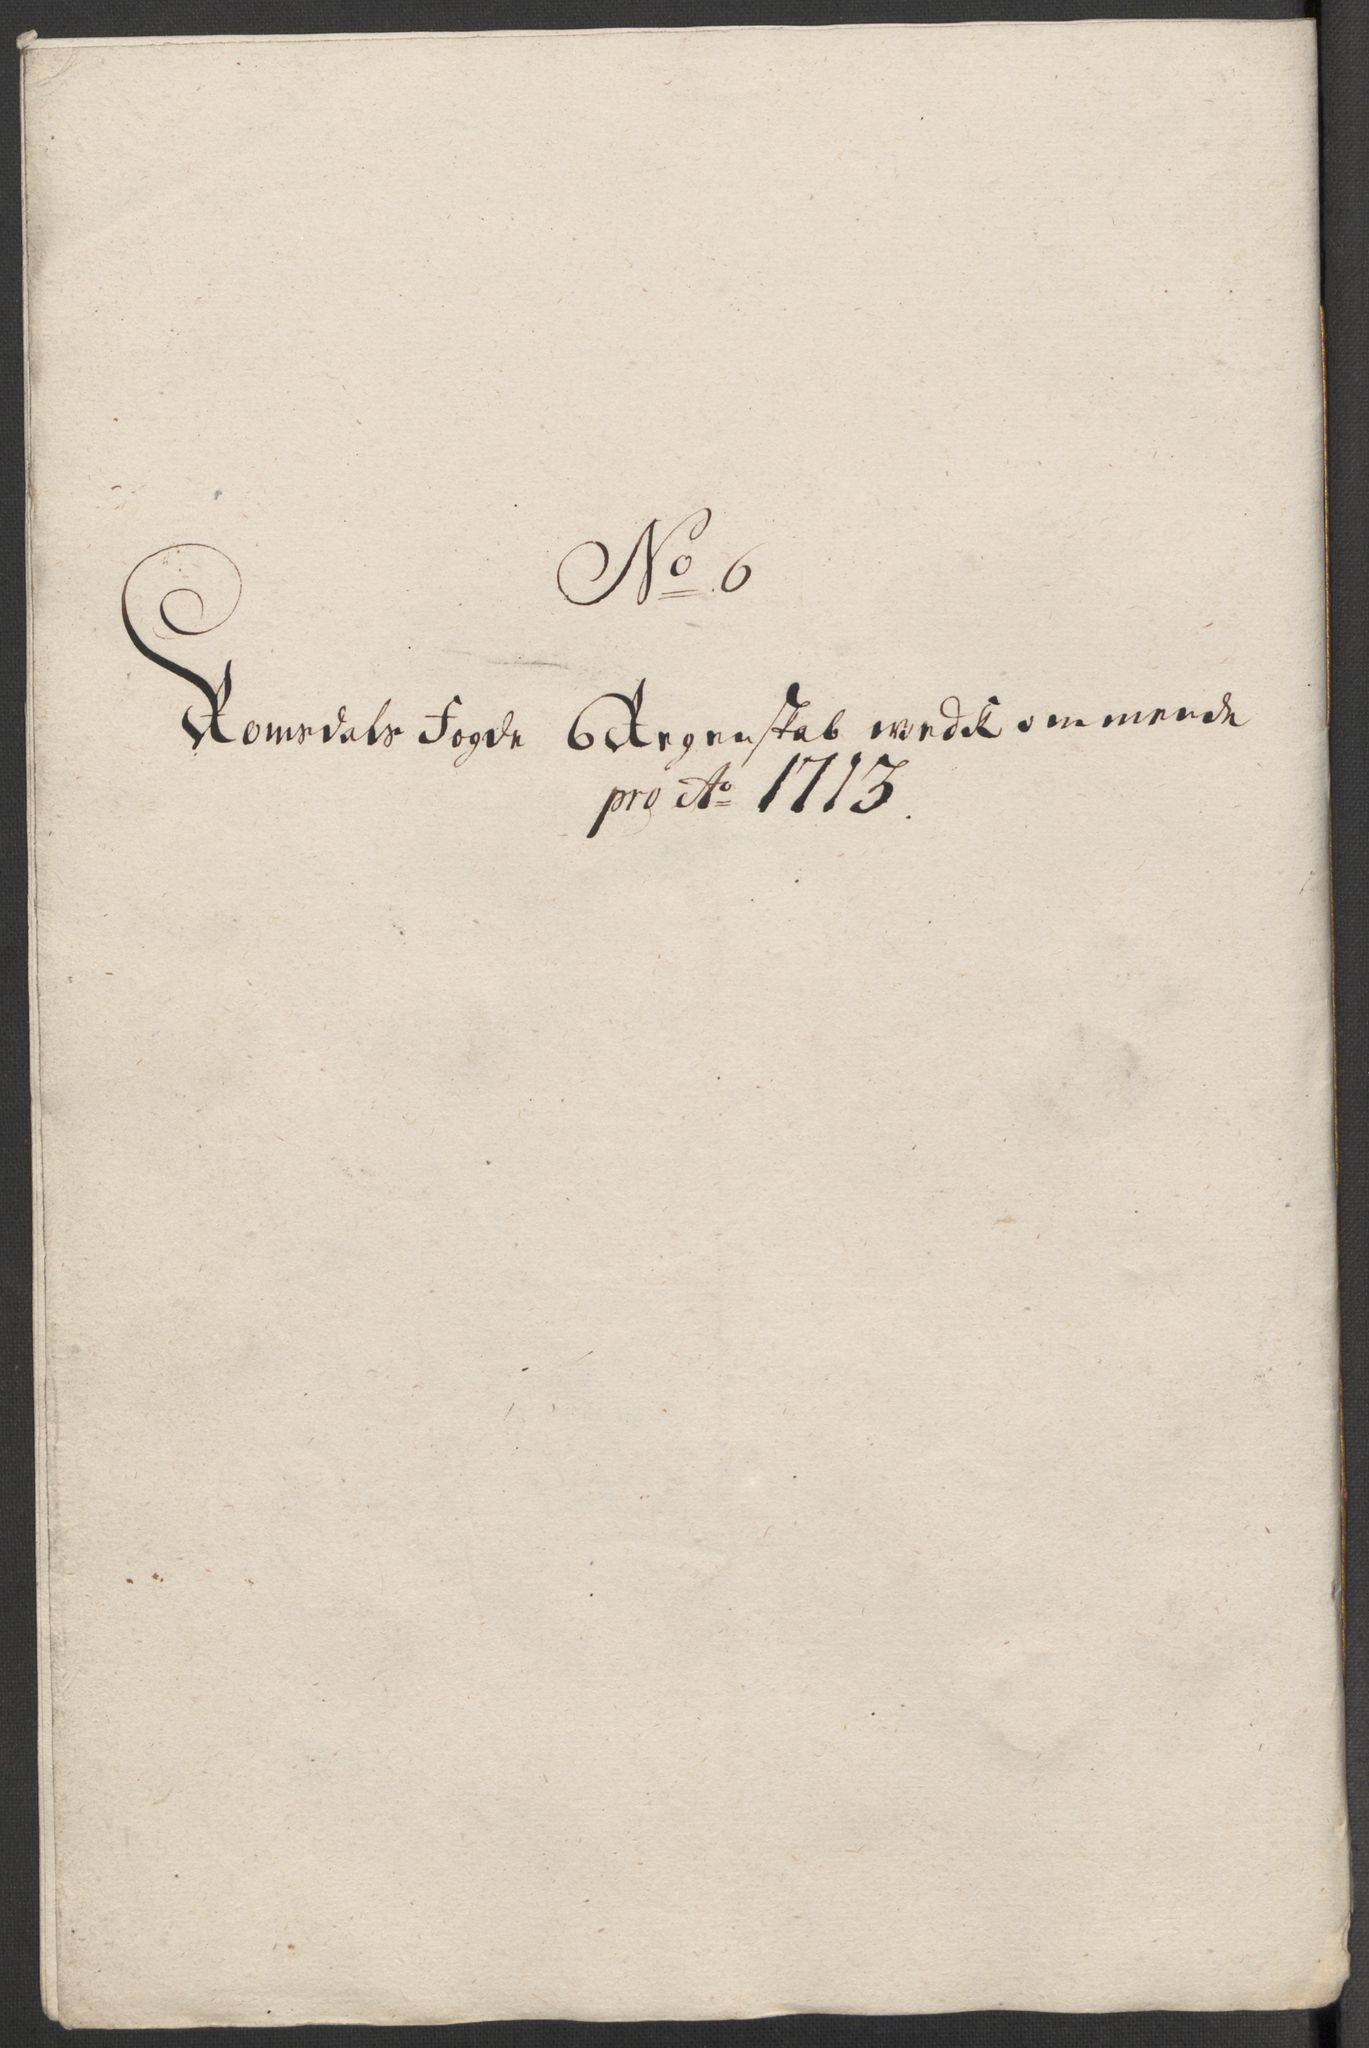 No 6
Romsdals Fogde Regenskab wedkommende
pro Ao 1713.